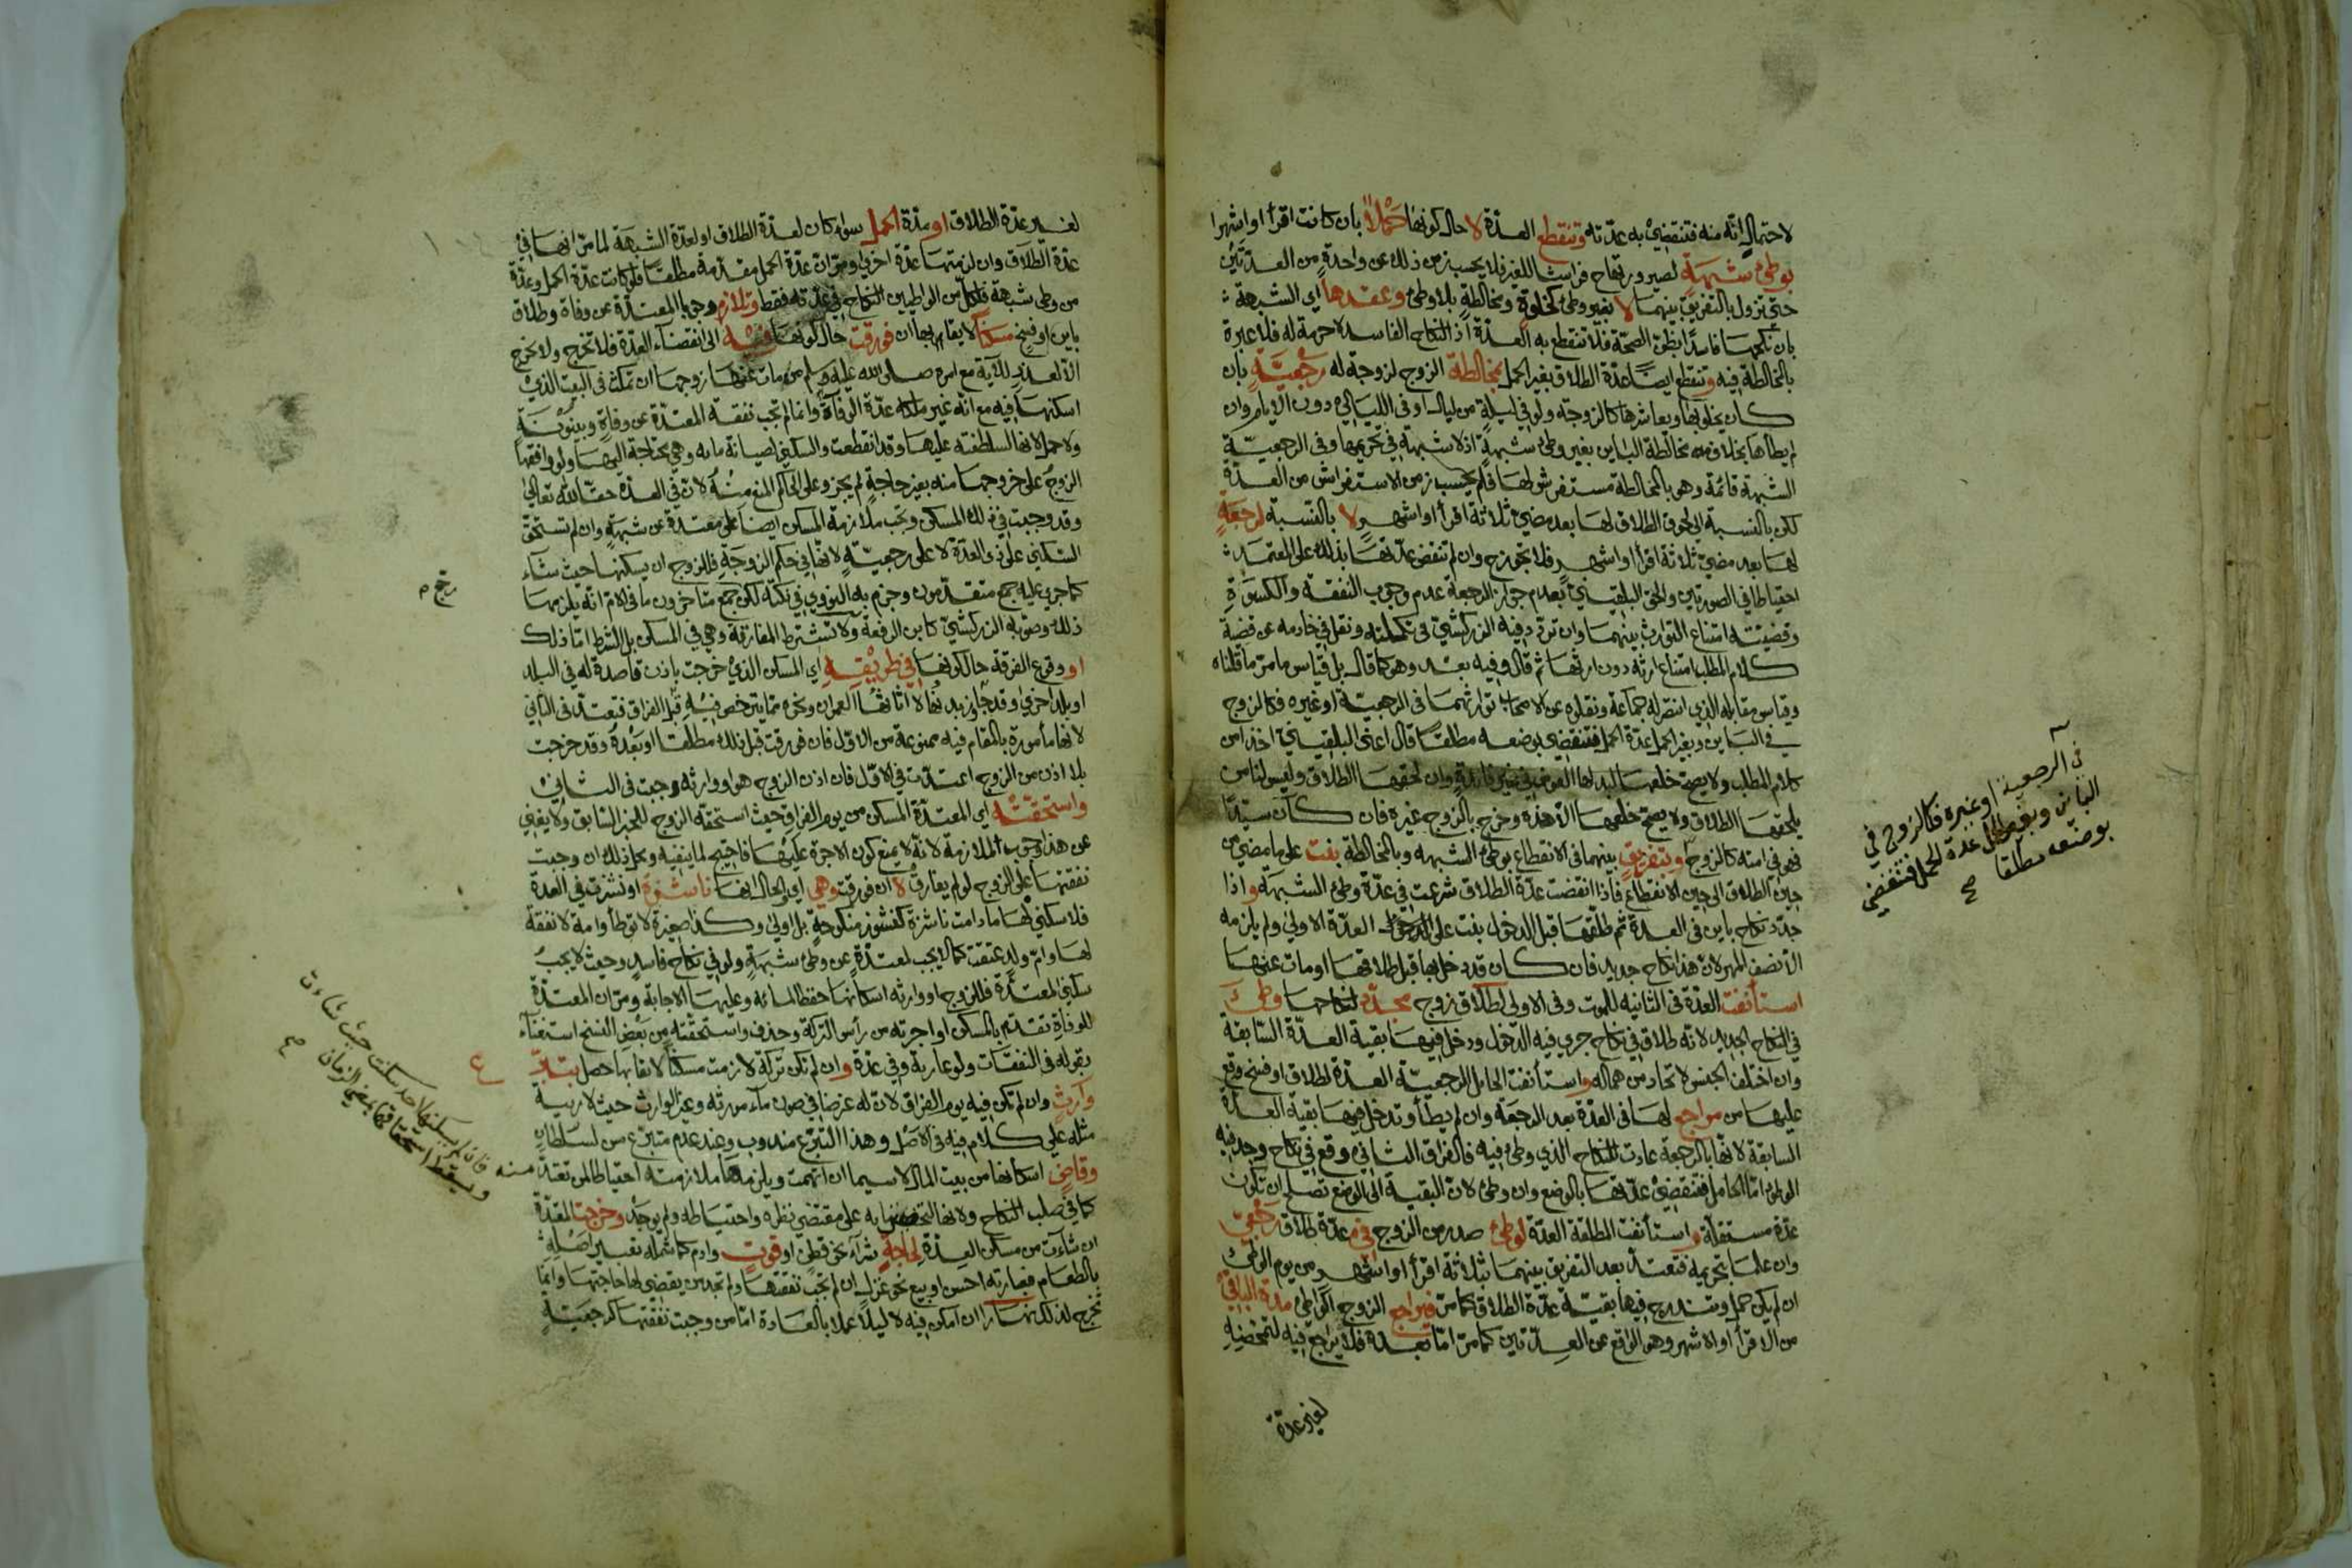 لاحتمال انه منه فتنقضي به عدته وتنقطع العدة لا حال كونها حملا بان كانت اقرأ او اشهرا
بوطئ شبهة لصيرورتها ح فراشا للغير فلا يحسب زمن ذلك عن واحدة من العدتين
حتى تزول بالتفريق بينهما لا بغير وطئ كخلوة ومخالطة بلا وطئ وعقدها اي الشبهة
بان نكحها فاسدا بظن الصحة فلا تنقطع به العدة اذ النكاح الفاسد لا حرمة له فلا عبرة
بالمخالطة فيه وتنقطع ايضا عدة الطلاق بغير الحمل بمخالطة الزوج لزوجة له رجعية بان
كان يخلو بها ويعاشرها كالزوجة ولو في ليلة من ليال او في الليالي دون الايام وان
لم يطأها بخلاف مخالطة الباين بغير وطئ شبهة اذ لا شبهة في تحريمها وفي الرجعية
الشبهة قائمة وهو بالمخالطة مستفرش لها فلم يحسب زمن الاستفراش من العدة
لكن بالنسبة الى لحوق الطلاق لها بعد مضي ثلاثة اقرأ او اشهر لا بالنسبة لرجعة
لها بعد مضي ثلاثة اقرأ او اشهر فلا تجوز ح وان لم تنقض عدتها بذلك على المعتمد
احتياطا في الصورتين والحق البلقيني بعدم جواز الرجعة عدم وجوب النفقة والكسوة
وقضيته امتناع التوارث بينهما وان تردد فيه الزركشي في تكملته ونقل في خادمه عن قضية
كلام المطلب امتناع ارثه دون ارثها ثم قال وفيه بعد وهو كما قال بل قياس ما مر ما قلناه
وقياس مقابله الذي انتصر له جماعة ونقلوه عن الاصحاب توارثهما في الرجعية او غيره فكالزوج
في الباين وبغير الحمل عدة الحمل فتنقضي بوضعه مطلقا قال اعني البلقيني اخذا من
كلام المطلب ولا يصح خلعها لبذلها العوض في غير فائدة وان لحقها الطلاق وليس لنا من
يلحقها الطلاق ولا يصح خلعها الا هذه وخرج بالزوج غيره فان كان سيدا
فهو في امته كالزوج وبتفريق بينهما في الانقطاع بوطئ الشبهه وبالمخالطة بنت على ما مضي من
حين الطلاق الى حين الانقطاع فاذا انقضت عدة الطلاق شرعت في عدة وطئ الشبهة واذا
جدد نكاح باين في العدة ثم طلقها قبل الدخول بنت على العدة الاولى ولم يلزمه
الا نصف المهر لان هذا نكاح جديد فان كان قد دخل بها قبل طلاقها او مات عنها
استأنفت العدة في الثانيه للموت وفي الاولى لطلاق زوج مجدد نكاحها وطئ
في النكاح الجديد لانه طلاق في نكاح جرى فيه الدخول ودخل فيها بقية العدة السابقة
وان اختلف الجنس لاتحاد من هما له واستأنفت الحايل الرجعية العدة لطلاق او فسخ وقع
عليها من مراجع لها في العدة بعد الرجعة وان لم يطأ وتدخل فيها بقية العدة
السابقة لانها بالرجعة عادت للنكاح الذي وطئ فيه فالفراق الثاني وقع في نكاح وجد فيه
الوطئ اما الحامل فتنقضي عدتها بالوضع وان وطئ لان البقية الى الوضع تصلح ان تكون
عدة مستقلة واستأنفت المطلقة العدة لوطئ صدر من الزوج في عدة طلاق رجعي
وان علما بتحريمه فتعتد بعد التفريق بينهما بثلاثة اقرأ او اشهر من يوم الوطئ
ان لم يكن حمل وتندرج فيها بقية عدة الطلاق كما مر فيراجع الزوج الواطئ مدة الباقي
من الاقرأ او الاشهر وهو الواقع عن العدتين كما مر اما بعده فلا يراجع فيه لتمحضه
لغير عدة
في الرجعية او غيره فكالزوج في
الباين وبغير الحمل عدة الحمل فتنقضي
بوضعه مطلقا صح
لغير عدة الطلاق او مدة الحمل سواء كان لعدة الطلاق او لعدة الشبهة لما مر انها في
عدة الطلاق وان لزمتها عدة اخرى ومر ان عدة الحمل مقدمة مطلقا فلو كانت عدة الحمل وعدة
من وطئ شبهة فلكل من الواطيين النكاح في عدته فقط وتلازم وجوبا المعتدة عن وفاة وطلاق
باين او فسخ مسكنا لايقا بها ان فورقت حال كونها فيه الى انقضاء العدة فلا تخرج ولا تخرج
الا لعذر للآية مع امره صلى الله عليه وسلم من مات عنها زوجها ان تمكث في البيت الذي
اسكنها فيه مع انه غير ملكه عدة الوفاة وانما لم تجب نفقة المعتدة عن وفاة وبينونة
ولا حمل لانها لسلطنته عليها وقد انقطعت والسكنى لصيانة مائه وهي محتاجة اليها ولو وافقها
الزوج على خروجها منه بغير حاجة لم يجز وعلى الحاكم المنع منه لان في العدة حقا لله تعالى
وقد وجبت في ذلك المسكن وتجب ملازمة المسكن ايضا على معتدة عن شبهة وان لم تستحق
السكنى على ذي العدة لا على رجعية لانها في حكم الزوجة فللزوج ان يسكنها حيث شاء
كما جرى عليه جمع متقدمون وجزم به النووي في نكته لكن جمع متاخرون ما في الام انه يلزمها
ذلك وصوبه الزركشي كابن الرفعة ولا تشترط المفارقة وهي في المسكن بل الشرط اما ذلك
او وقوع الفرقة حال كونها في طريقه اي المسكن الذي خرجت باذن قاصدة له في البلد
او بلد اخرى وقد جاوز بدنها لا اثاثها العمران ونحوه مما يترخص فيه قبل الفراق فتعتد في الثاني
لانها مأمورة بالمقام فيه ممنوعة من الاول فان فورقت قبل ذلك مطلقا او بعده وقد خرجت
بلا اذن من الزوج اعتدت في الاول فان اذن الزوج هو او وارثه وجبت في الثاني
واستحقته اي المعتدة المسكن من يوم الفراق حيث استحقه الزوج للخبر السابق ولا يغني
عن هذا وجوب الملازمة لانه لا يمنع كون الاجرة عليها فاحتيج لما ينفيه ومحل ذلك ان وجبت
نفقتها على الزوج لو لم يفارق لا ان فورقت وهي اي والحال انها ناشزة او نشزت في العدة
فلا سكنى لها ما دامت ناشزة كنشوز منكوحة بل اولى وكذا صغيرة لا توطأ وامة لا نفقة
لها وام ولد عتقت كما لا يجب لمعتدة عن وطئ شبهة ولو في نكاح فاسد وحيث لا يجب
سكنى المعتدة فللزوج او وارثه اسكانها حفظا لمائه وعليها الاجابة ومر ان المعتدة
للوفاة تقدم بالمسكن او اجرته من رأس التركة وحذف واستحقته من بعض النسخ استغناء
بقوله في النفقات ولو عارية وفي عدة وان لم تكن تركة لازمت مسكنا لايقا بها حصل بتبرع
وارث وان لم تكن فيه يوم الفراق لان له غرضا في صون ماء مورثه وغير الوارث حيث لا ريبة
مثله على كلام فيه في الاصل وهذا التبرع مندوب وعند عدم متبرع سن لسلطان
وقاض اسكانها من بيت المال لا سيما ان اتهمت ويلزمها ملازمته احتياطا لمن تعتد منه
كما في صلب النكاح ولانها التحصين به على مقتضى نظره واحتياطه ولم يوجد وخرجت المعتدة
ان شاءت من مسكن العدة لحاجة شراء نحو قطن او قوت وادم كما شمله تفسير اصله
بالطعام فعبارته احسن او بيع نحو غزل ان لم تجب نفقتها ولم تجد من يقضي لها حاجتها وانما
تخرج لذلك نهارا ان امكن فيه لا ليلا عملا بالعادة اما من وجبت نفقتها كرجعية
فان لم يسكنها احد سكنت حيث شاءت
ويسقط استحقاقها بمضي الزمان صح